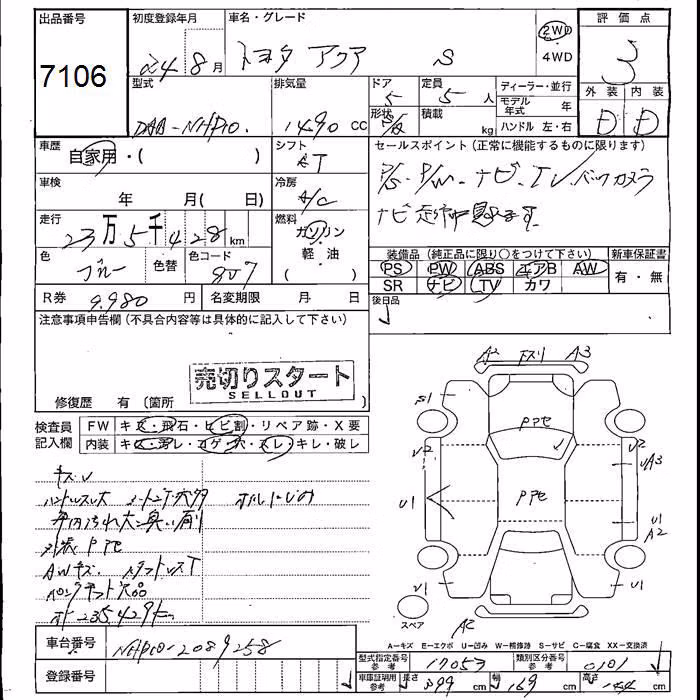 出品番号
7106
初度登録年月
24 8月
車名・グレード
トヨタ アクア S
2WD
・
4WD
評価点
3
外装 内装
D D
型式
DAA-NHP10
排気量
1490 CC
ドア
5
形状
5/6
定員
5 人
積載
kg
ディーラー・並行
モデル年式 年
ハンドル 左・右
車歴
自家用・( )
シフト
AT
セールスポイント(正常に機能するものに限ります)
P/S. P/W. ナビ. TV. バックカメラ
ナビ走行中見えます
車検
年 月( 日)
冷房
A/C
走行
23万5千428km
燃料
ガソリン
・
軽・油
( )
色
ブルー
色替
色コード
8V7
装備品(純正品に限り○をつけて下さい)
新車保証書
PS PW ABS エアB AW
SR ナビ TV カワ
有・無
R券 9,980円
名変期限 月 日
後日品
注意事項申告欄(不具合内容等は具体的に記入して下さい)
売切りスタート
SELLOUT
修復歴 有 (箇所 )
検査員記入欄
FW キズ・飛石・ヒビ割・リペア跡・X要
内装 キズ・汚レ・コゲ・穴・スレ・キレ・破レ
キズU
ハンドルスレ
外装PPセ
AWキズ
235,429km
A2 下スリ A3
S1
PPセ
V2 V2
VA3
U1
PPセ
U1
A2
V1 V1
スペア
A2
A=キズ E=エクボ U=凹み W=補修跡 S=サビ C=腐食 XX=交換済
車台番号
NHP10-2089258
登録番号
型式指定番号
参考
17053
類別区分番号
参考
0101
車庫証明用
参考
長さ 399 cm
幅 169 cm
高さ 144 cm